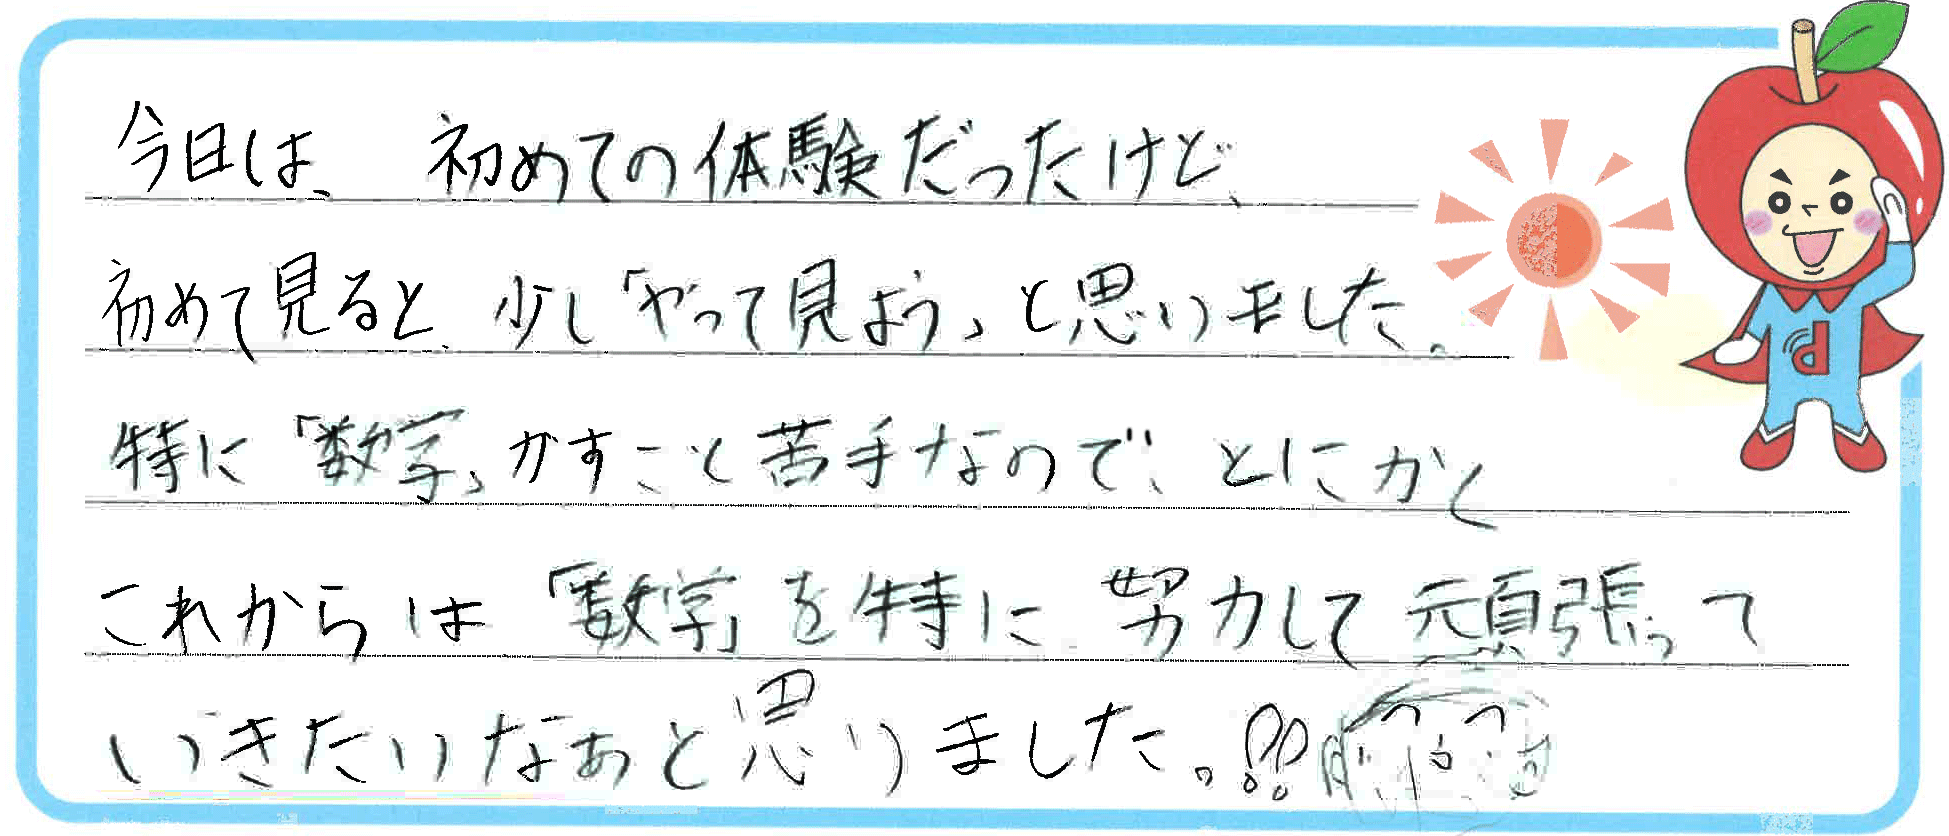 今日は、初めての体験だったけど、
初めて見ると、少し「やって見よう」と思いました。
特に「数学」がすごく苦手なので、とにかく
これからは「数学」を特に努力して頑張って
いきたいなぁと思いました。!!